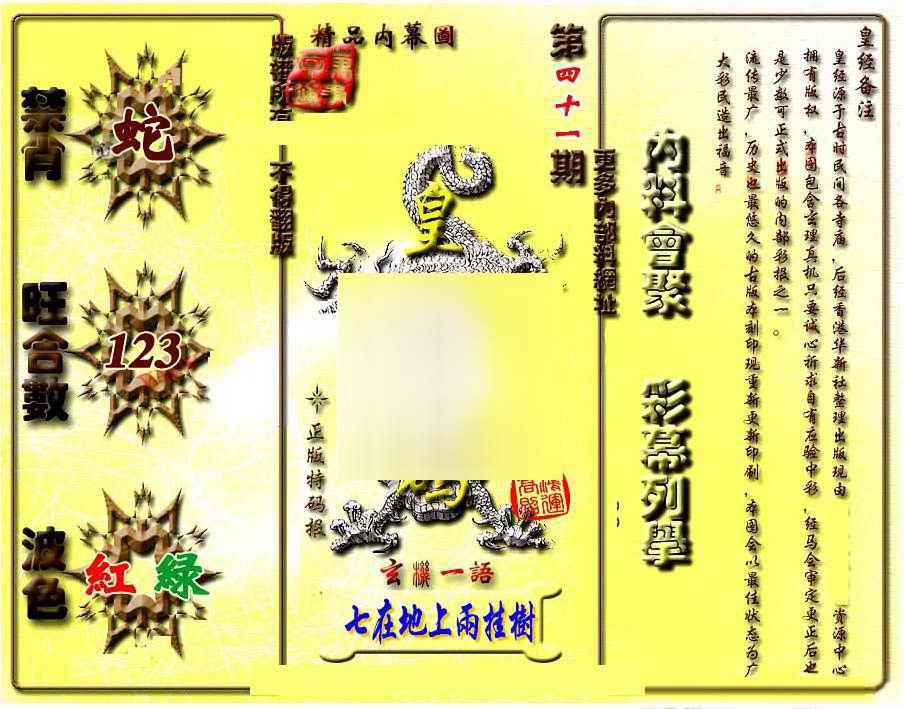 精品內幕圖
第四十一期
版權所有
不得翻版
更多內部料網址
禁肖
蛇
旺合數
123
波色
紅 綠
皇
正版特码报
玄機一語
七在地上兩挂樹
內料會聚
彩幕列舉
皇经备注
皇经源于古时民间各寺庙，后经香港华新社整理出版现由 资源中心
拥有版权，本图包含玄理真机只要诚心祈求自有应验中彩，经马会审定更正后也
是少数可正式出版的内部彩报之一。
流传最广，历史也最悠久的古版本刻印现重新更新印刷，本图会以最佳状态为广
大彩民造出福音